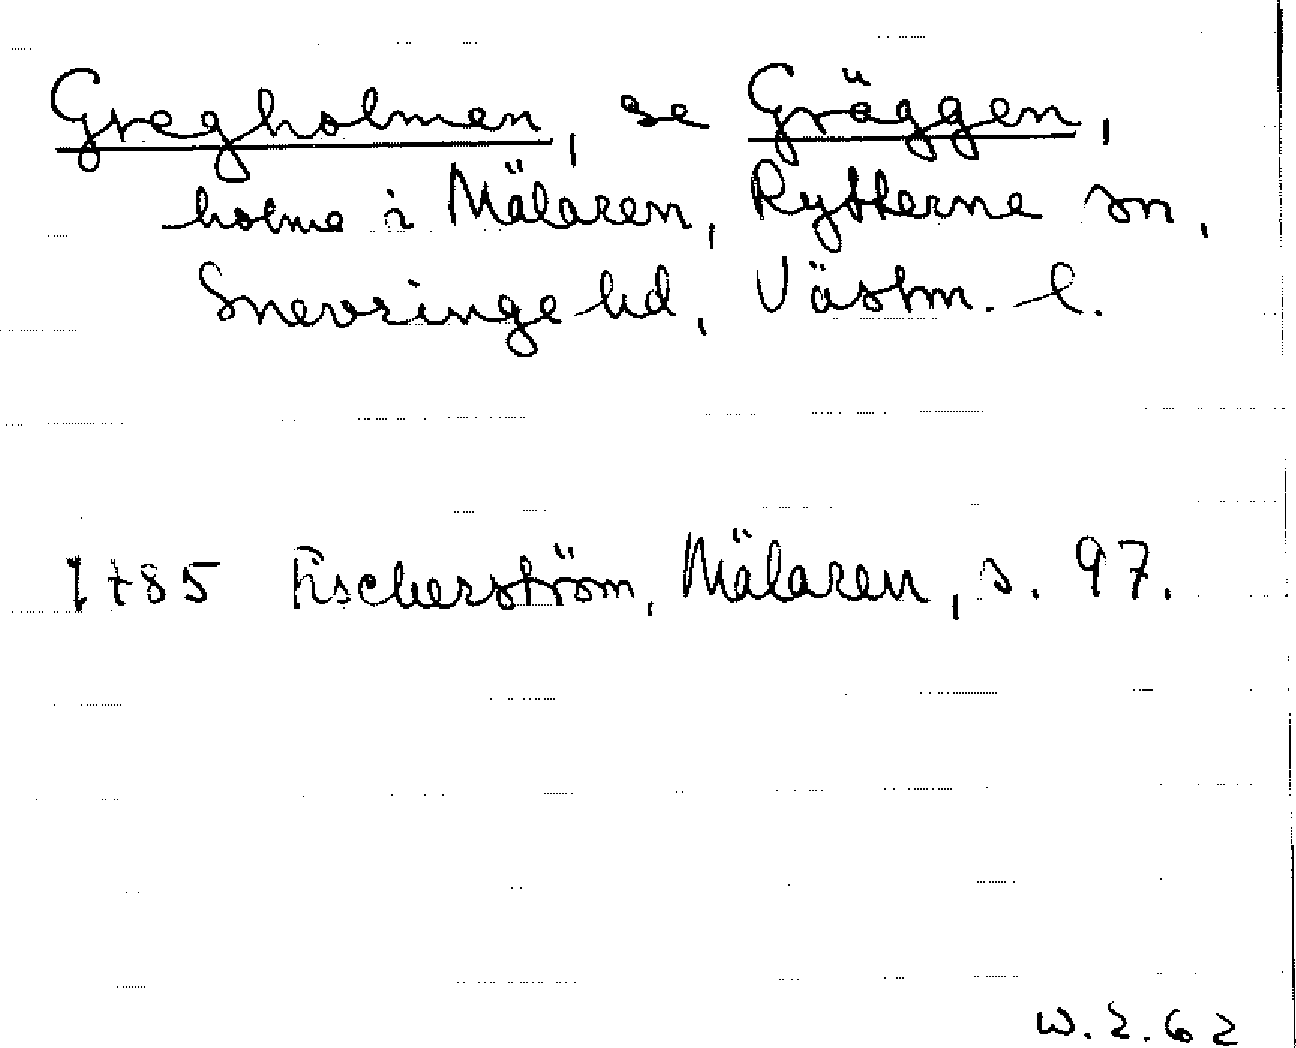 Gregholmen, se Gräggen,
holme i Mälaren, Rytterne sn,
Snevringe hd, Västm. l.
1785 Fischerström, Mälaren, s. 97.
W. 2. 62